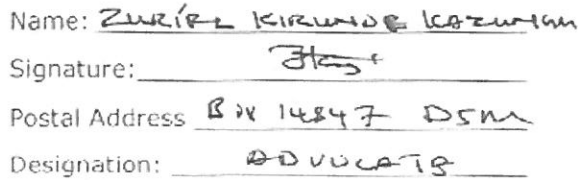 Name: ZURIEL KIRUNDE KAZUNGU
Signature:
Postal Address Box 14847 DSM
Designation: ADVOCATE